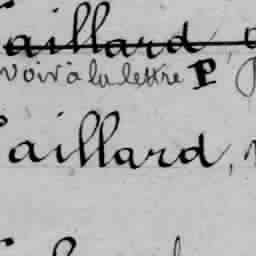 aillard
voir à la lettre P
aillard,